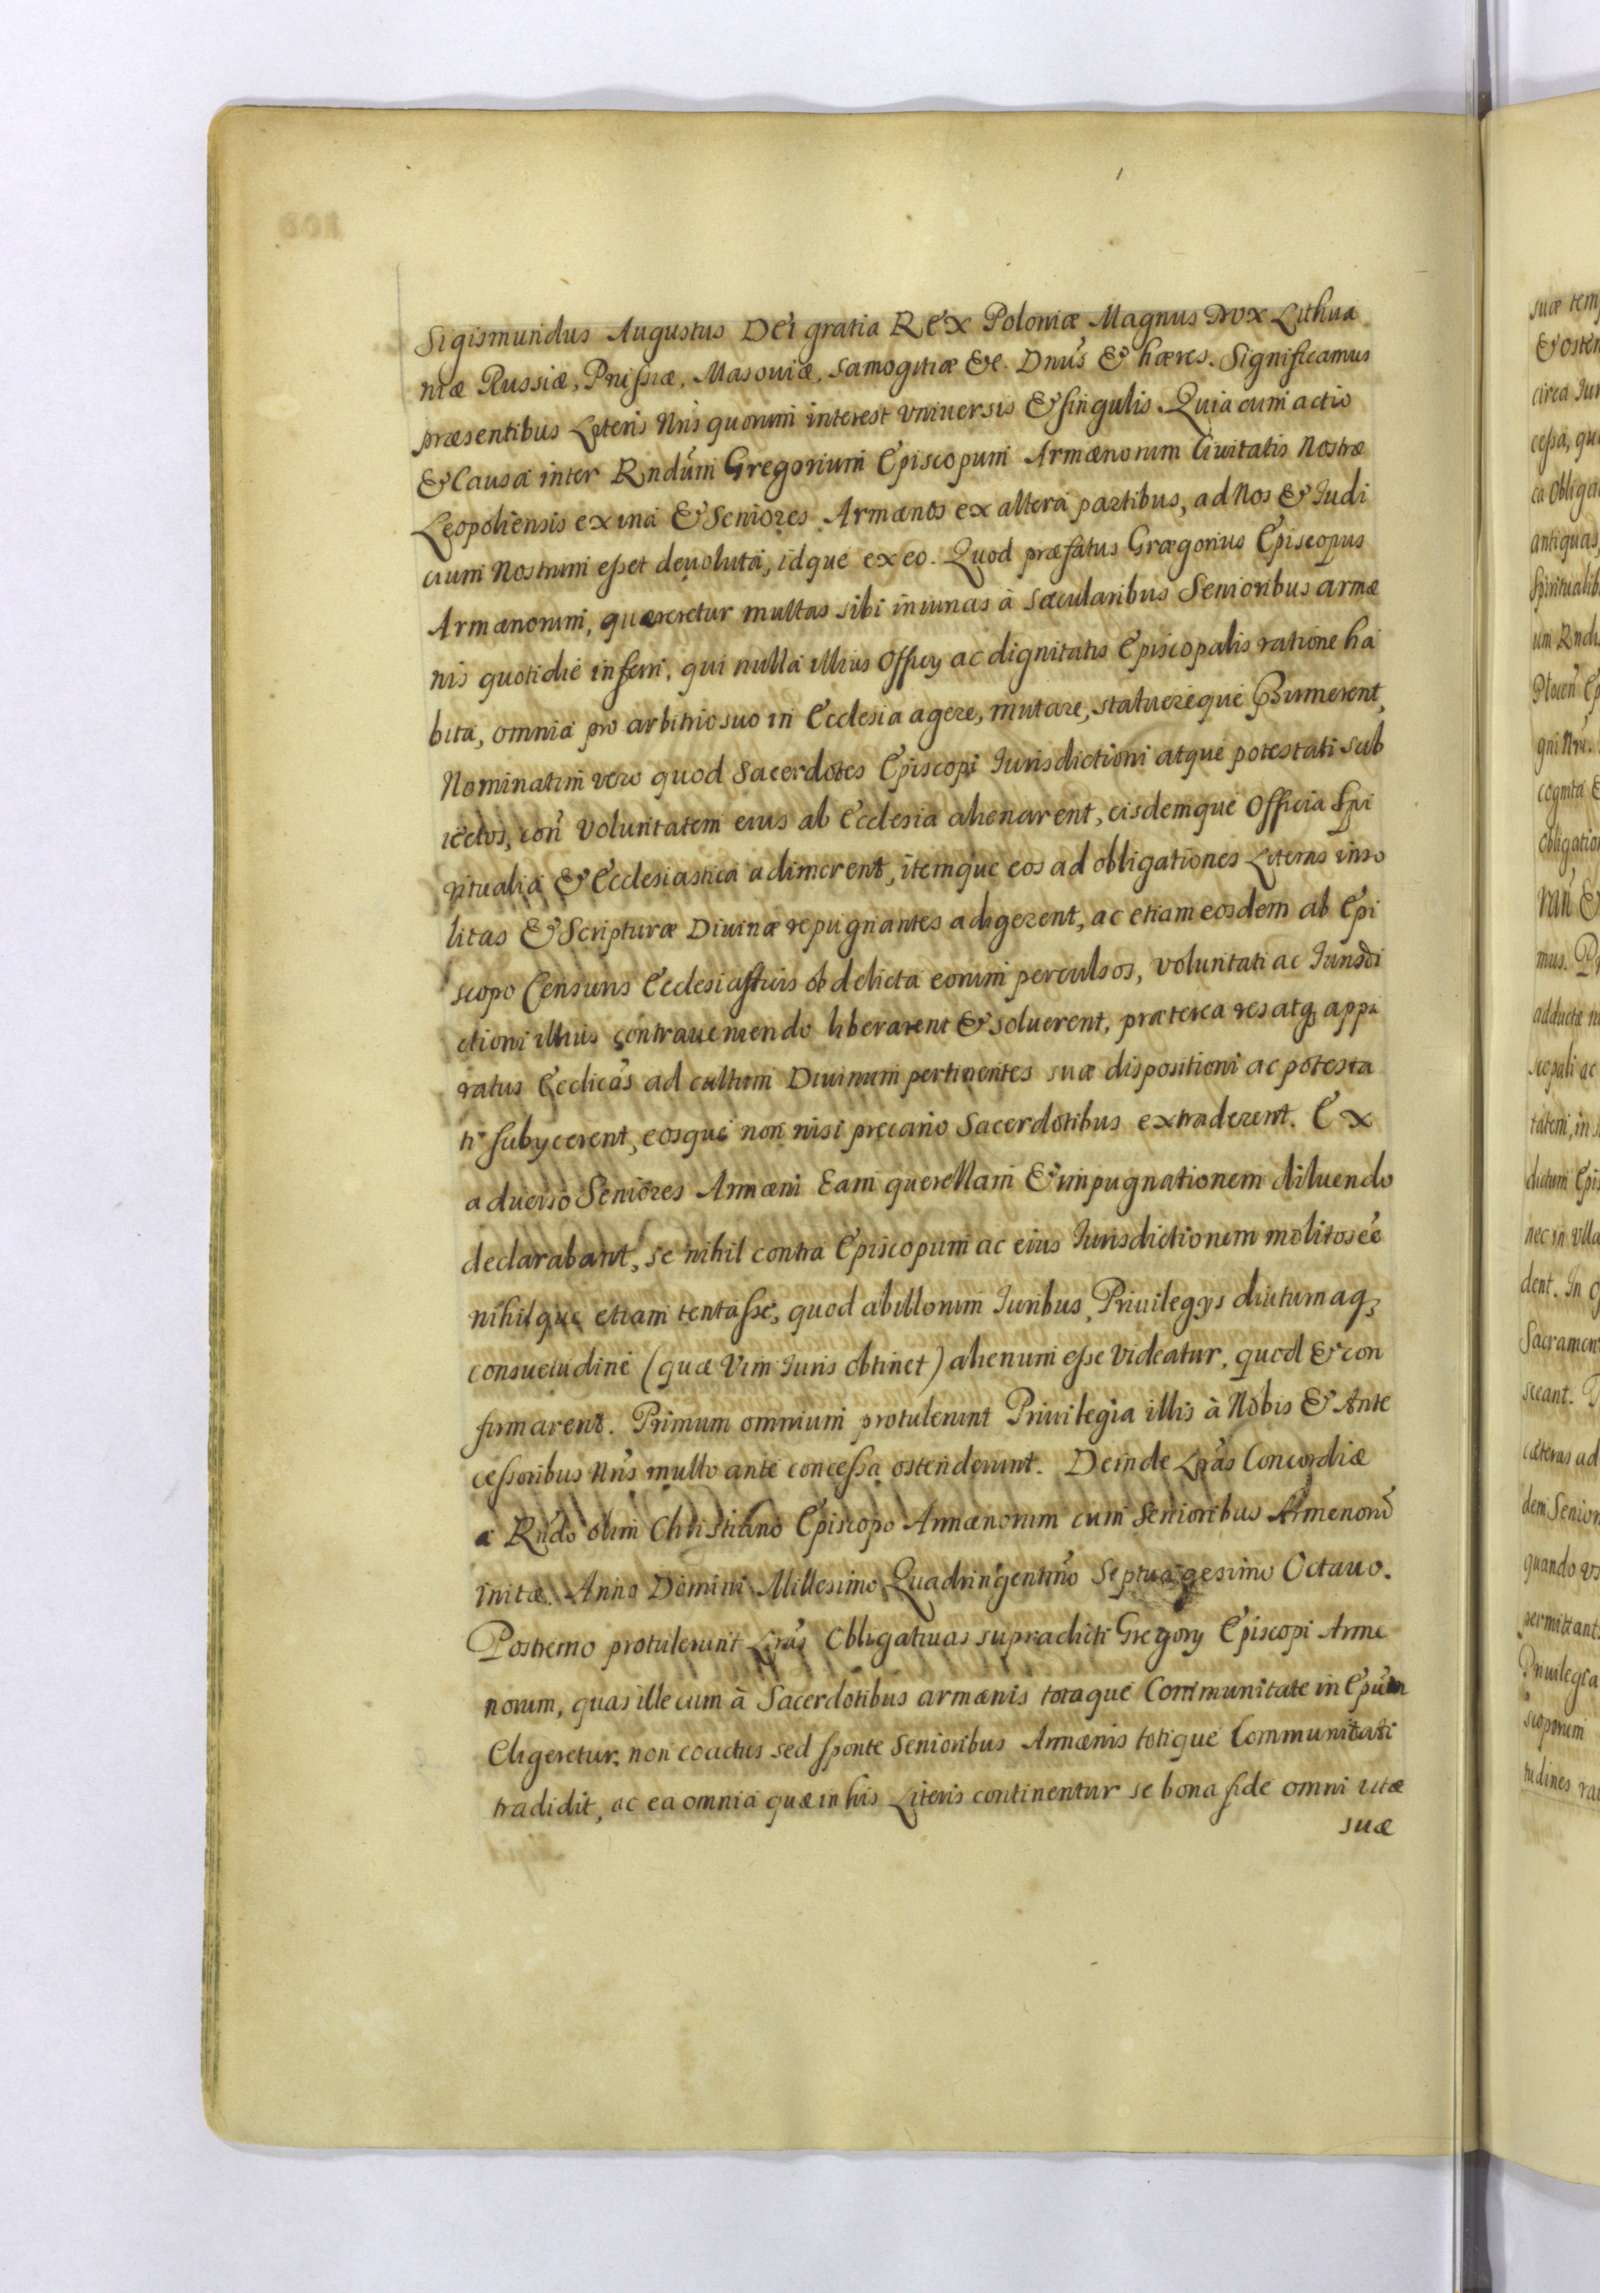 Sigismundus Augustus DEI gratia REX Poloniæ Magnus Dux Lithua
niæ Russiæ, Prussiæ, Masouiæ, Samogitiæ &c. Dnus & hæres. Significamus
præsentibus Literis Nris quorum interest vniuersis & singulis. Quia cum actio
& Causa inter Rndum Gregorium Episcopum Armænorum Ciuitatis Nostræ
Leopoliensis ex una & Seniores Armænos ex altera partibus, ad Nos & Iudi
cium Nostrum esset deuoluta, idque ex eo. Quod præfatus Grægorius Episcopus
Armænorum, quæreretur multas sibi iniurias à Sæcularibus Senioribus armæ
nis quotidie inferri, qui nulla illius Officy ac dignitatis Episcopalis ratione ha
bita, omnia pro arbitrio suo in Ecclesia agere, mutare, statuereque
Nominatim vero quod Sacerdotes Episcopi Iurisdictioni atque potestati sub
iectos, con voluntatem eius ab Ecclesia alienarent, eisdemque Officia Spi
ritualia & Ecclesiastica adimerent, itemque eos ad obligationes Literas inso
litas & Scripturæ Diuinæ repugnantes adigerent, ac etiam eosdem ab Epi
scopo Censuris Ecclesiasticis ob delicta eorum perculsos, voluntati ac Iurisdi
ctioni illius contraueniendo liberarent & soluerent, præterea res atq appa
ratus Ecclicos ad cultum Diuinum pertinentes suæ dispositioni ac potesta
ti subycerent, eosque non nisi precario Sacerdotibus extraderent. Ex
aduerso Seniores Armæni Eam querellam & impugnationem diluendo
declarabant, se nihil contra Episcopum ac eius Iurisdictionem molitos ee
nihilque etiam tentasse, quod ab illorum Iuribus, Priuilegys diuturnaq
consuetudine (quæ Vim Iuris obtinet) alienum esse videatur, quod & con
firmarent. Primum omnium protulerunt Priuilegia illis à Nobis & Ante
cessoribus Nris multo ante concessa ostenderunt. Deinde Lras Concordiæ
a Rndo olim Christiano Episcopo Armænorum cum Senioribus Armenoru
initæ. Anno Domini Millesimo Quadringentmo Septuagesimo Octauo.
Postremo protulerunt Lras Obligatiuas supradicti Gregory Episcopi Arme
norum, quas ille cum à Sacerdotibus armænis totaque Communitate in Epum
Eligeretur, non coactus sed sponte Senioribus Armænis totique Communitati
tradidit, ac ea omnia quæ in his Literis continentur se bona fide omni vitæ
suæ